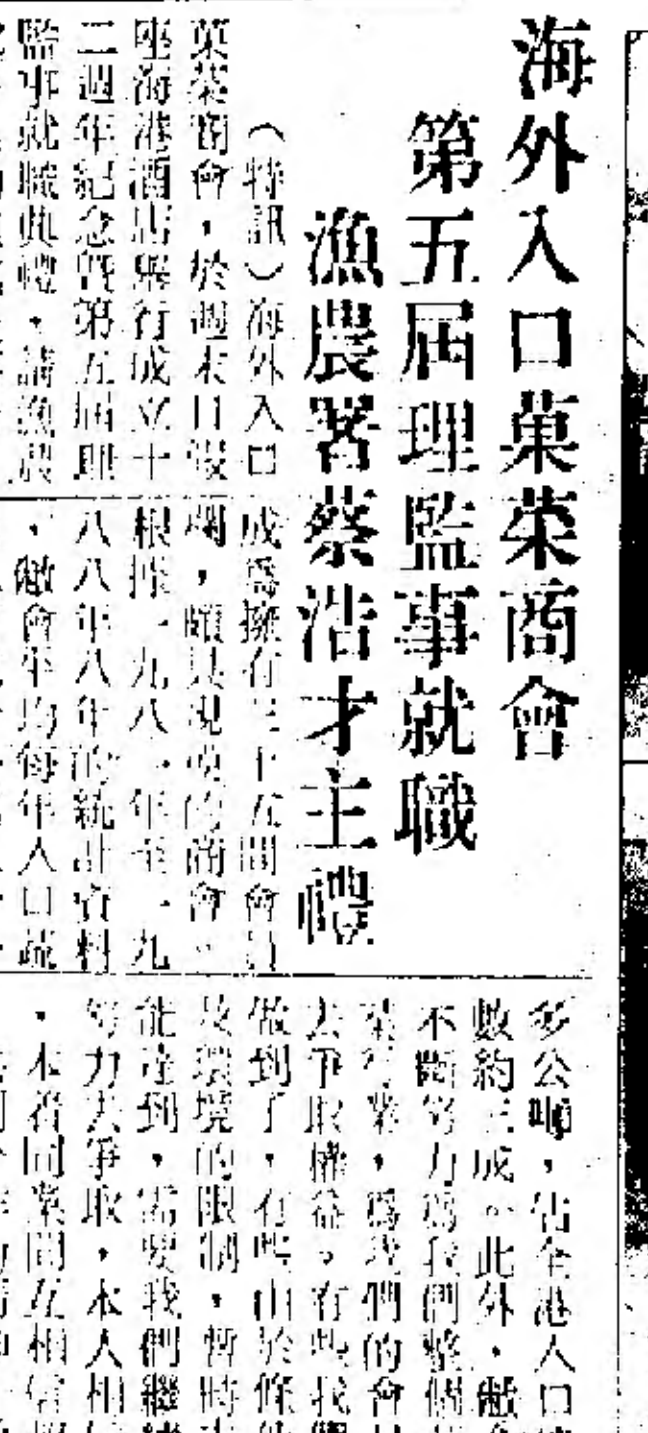 海外入口菓菜商會
第五届理監事就職
漁農署蔡浩才主禮
（特訊）海外入口
菓菜商會，於週末日假
座海港酒店舉行成立十
二週年紀念暨第五届理
監事就職典禮，請漁農
成為擁有三十五間會員
，頗具規模的商會。
根據一九八一年至一九
八八年八年的統計資料
，敝會平均每年入口蔬
多公噸，佔全港入口
數約三成。此外，敝
不斷努力為我們整個
菜行業，為我們的會
去爭取權益。有些我
做到了，有些由於條
及環境的限制，暫時
能達到，需要我們繼
努力去爭取，本人相
，本着同業間互相信